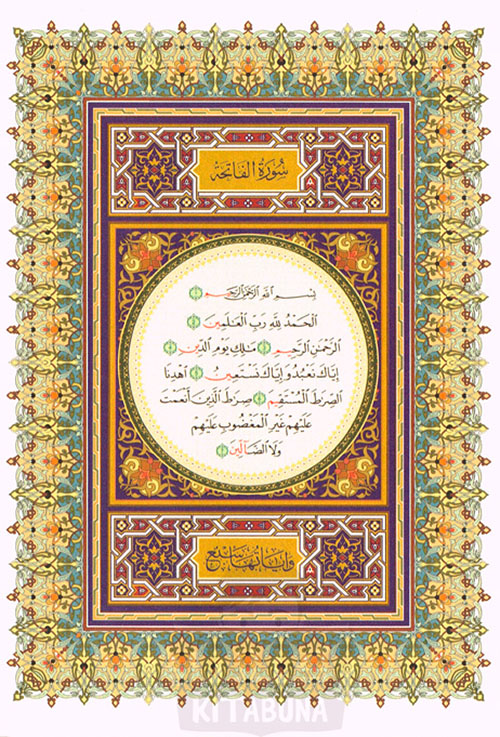 سُورَةُ الفَاتِحَة
بِسْمِ ٱللَّهِ ٱلرَّحْمَٰنِ ٱلرَّحِيمِ ١
ٱلْحَمْدُ لِلَّهِ رَبِّ ٱلْعَٰلَمِينَ ٢
ٱلرَّحْمَٰنِ ٱلرَّحِيمِ ٣ مَٰلِكِ يَوْمِ ٱلدِّينِ ٤
إِيَّاكَ نَعْبُدُ وَإِيَّاكَ نَسْتَعِينُ ٥ ٱهْدِنَا
ٱلصِّرَٰطَ ٱلْمُسْتَقِيمَ ٦ صِرَٰطَ ٱلَّذِينَ أَنْعَمْتَ
عَلَيْهِمْ غَيْرِ ٱلْمَغْضُوبِ عَلَيْهِمْ
وَلَا ٱلضَّآلِّينَ ٧
وَآيَاتُهَا سَبْع
KITABUNA